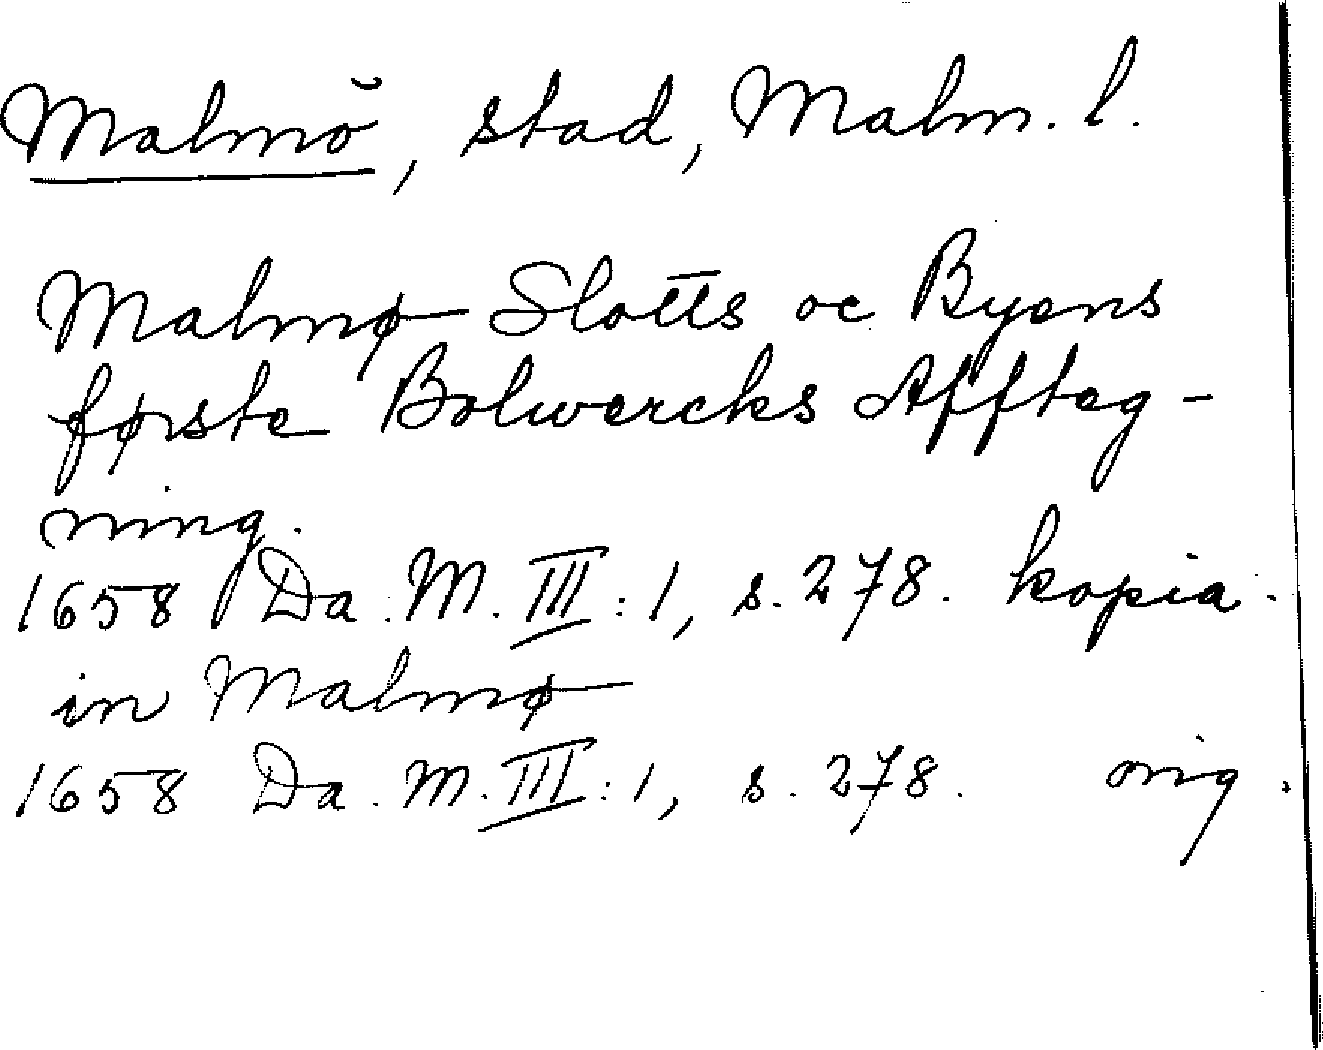 Malmö, stad, Malm. l.
Malmø Slotts oc Byens
første Bolwercks Affteg-
ning.
1658 Da. M. III: 1, s. 278. kopia.
in Malmø
1658 Da. M. III: 1, s. 278. orig.